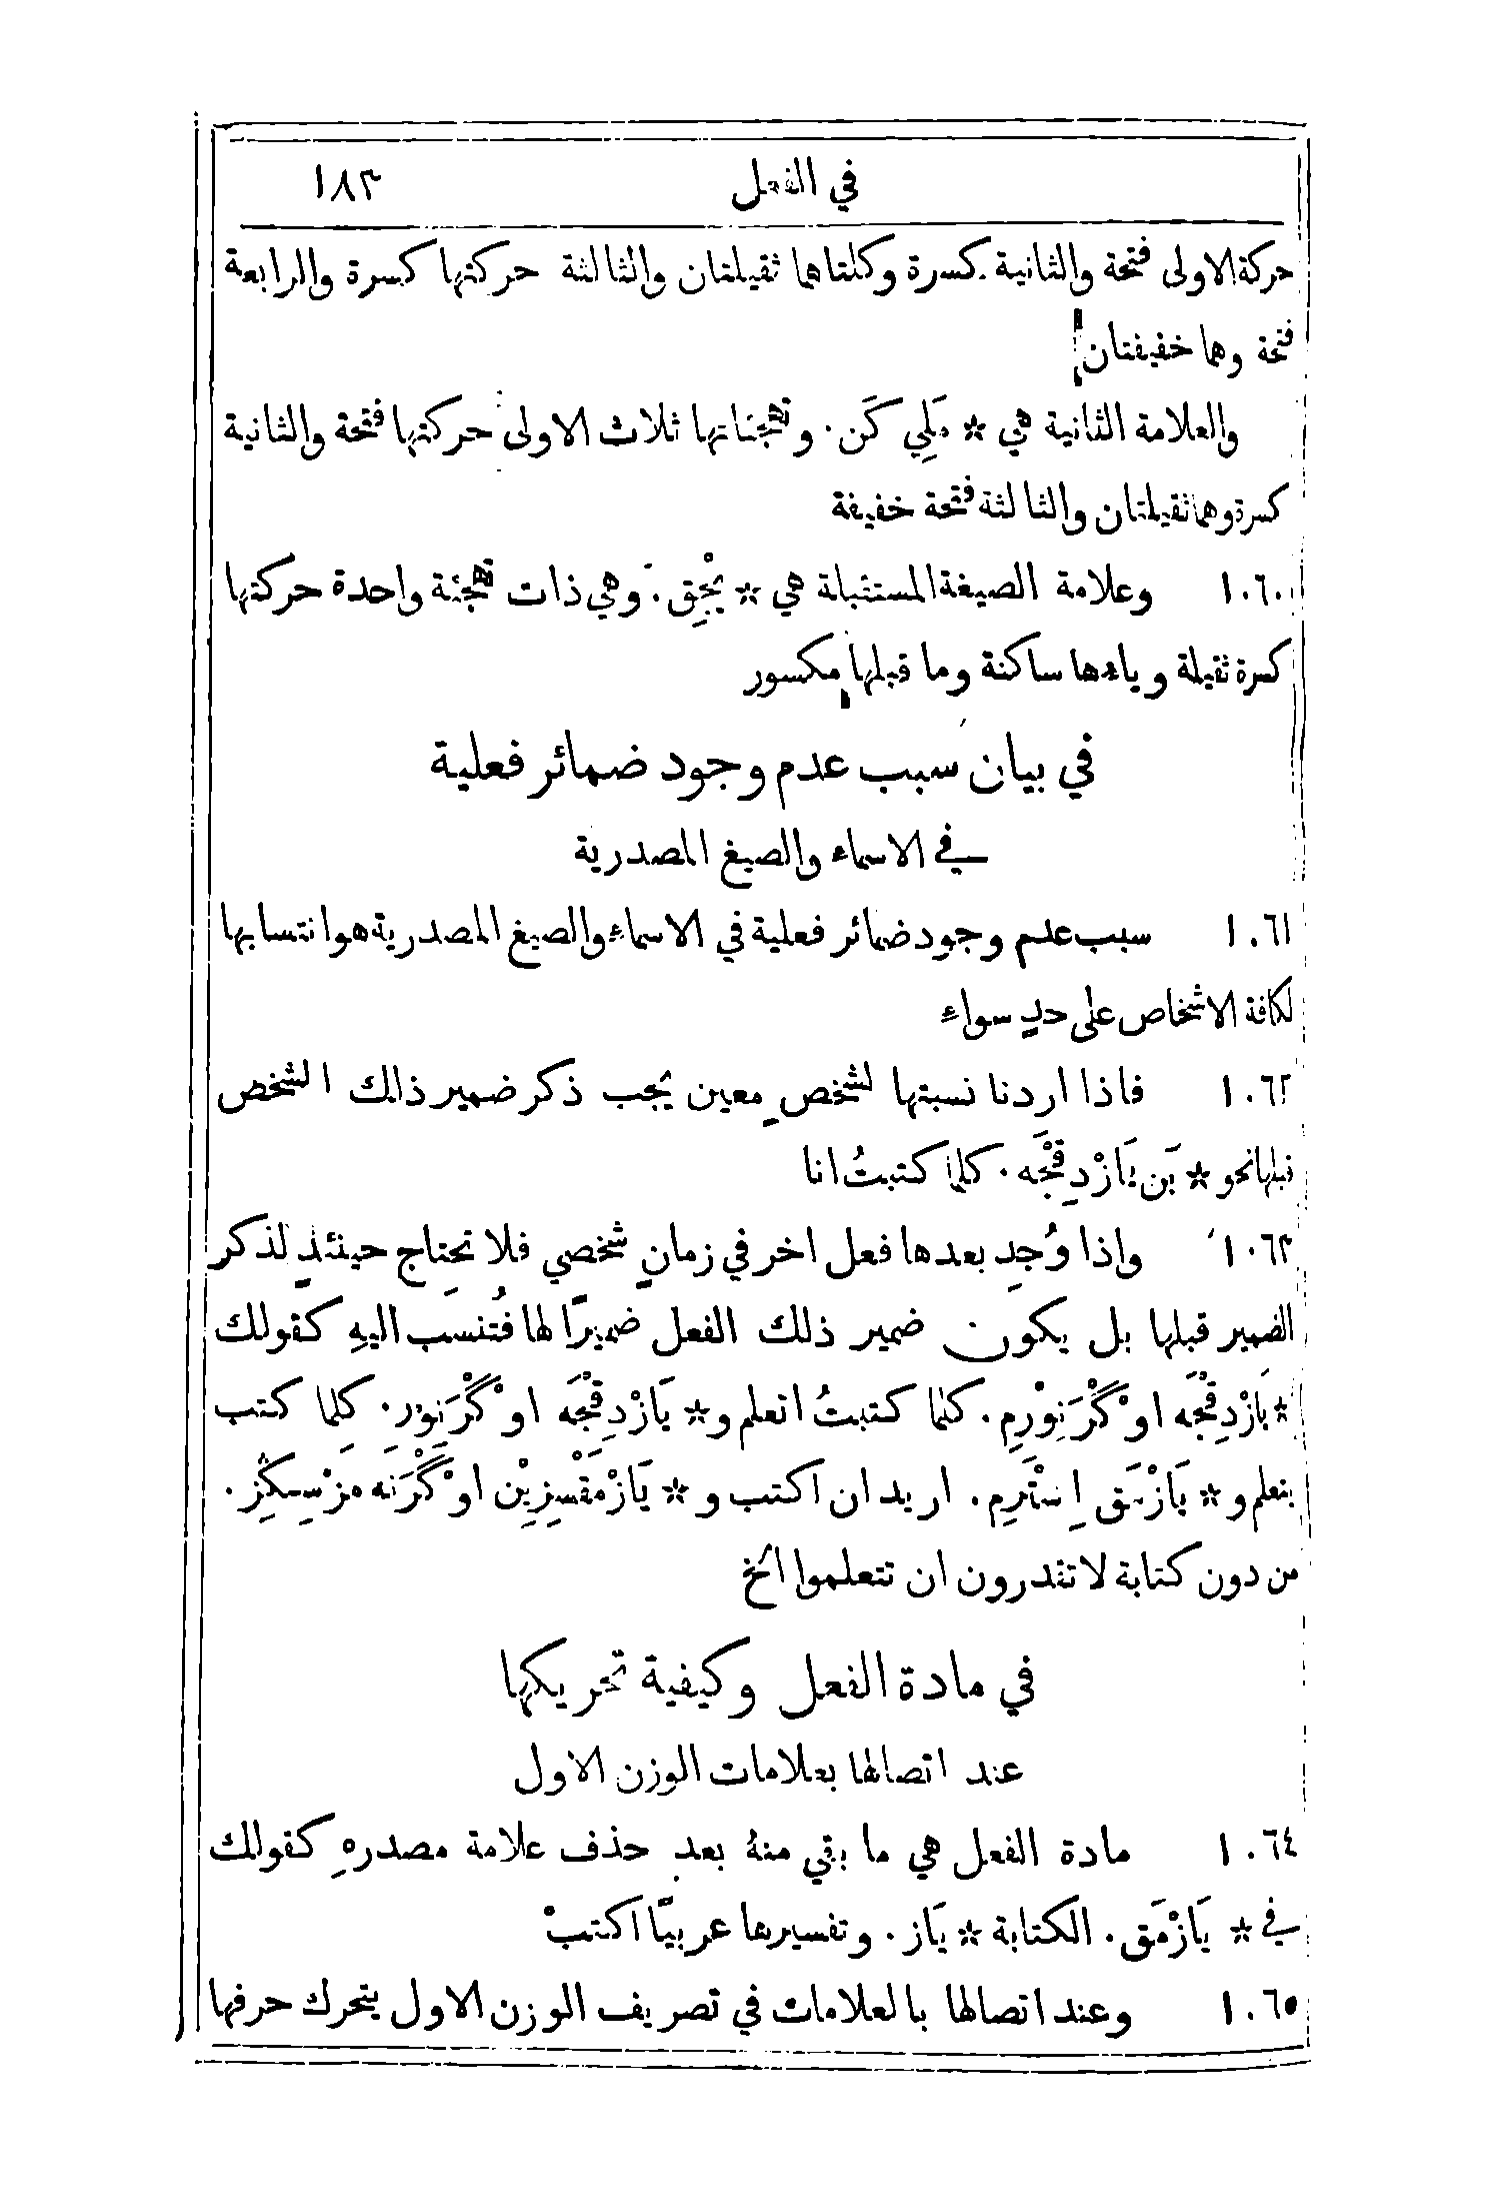 في الفعل ١٨٣
حركة الاولى فتحة والثانية كسرة وكلتاهما ثقيلتان والثالثة حركتها كسرة والرابعة
فتحة وهما خفيفتان
والعلامة الثانية هي * مَلِي كَن . وتهجئاتها ثلاث الاولى حركتها فتحة والثانية
كسرة وهما ثقيلتان والثالثة فتحة خفيفة
١٠٦٠ وعلامة الصيغة المستقبلة هي * يْجِق . وهي ذات تهجئة واحدة حركتها
كسرة ثقيلة وياءها ساكنة وما قبلها مكسور
في بيان سبب عدم وجود ضمائر فعلية
في الاسماء والصيغ المصدرية
١٠٦١ سبب عدم وجود ضمائر فعلية في الاسماء والصيغ المصدرية هو انتسابها
لكافة الاشخاص على حدٍ سواءٍ
١٠٦٢ فاذا اردنا نسبتها لشخصٍ معين يجب ذكر ضمير ذالك الشخص
قبلها نحو * بَن يَازْدِقْجَه . كلما كتبتُ انا
١٠٦٣ واذا وُجِد بعدها فعل اخر في زمانٍ شخصي فلا تحتاج حينئذٍ لذكر
الضمير قبلها بل يكون ضمير ذلك الفعل ضميرًا لها فتُنسَب اليهِ كقولك
* يَازْدِقْجَه اوْگْرَنِوْرِم . كلما كتبتُ اتعلم و * يَازْدِقْجَه اوْگْرَنِوْر . كلما كتب
يتعلم و * يَازْمَق اِسْتَرِم . اريد ان اكتب و * يَازْمَقْسِزِيْن اوْگْرَنَه مَزْسِڭِز .
من دون كتابة لا تقدرون ان تتعلموا الخ
في مادة الفعل وكيفية تحريكها
عند اتصالها بعلامات الوزن الاول
١٠٦٤ مادة الفعل هي ما بقي منهُ بعد حذف علامة مصدرهِ كقولك
في * يَازْمَق . الكتابة * يَاز . وتفسيرها عربيًّا اكتبْ
١٠٦٥ وعند اتصالها بالعلامات في تصريف الوزن الاول يتحرك حرفها